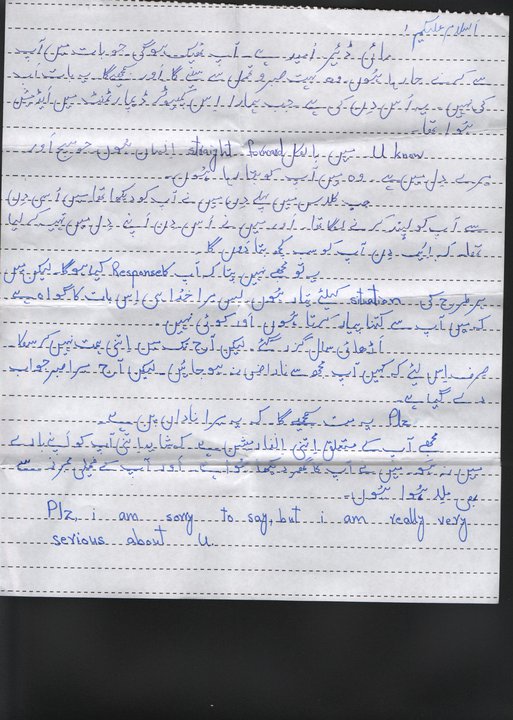 اسلام علیکم !
مائی ڈیئر امید ہے۔ آپ ٹھیک ہوگی جو بات میں آپ
سے کرنے جا رہا ہوں۔ وہ بہت صبر و تحمل سے سنیے گا اور سمجھیے گا۔ یہ بات اب
کی نہیں۔ یہ اُس دن کی ہے جب ہمارا اس کمپیوٹر ڈیپارٹمنٹ میں ایڈمیشن
ہُوا تھا۔
U know میں بالکل straight forward انسان ہوں جو سچ اور
میرے دل میں ہے۔ وہ میں آپ کو بتا رہا ہوں۔
جب کلاس میں پہلے دن میں نے آپ کو دیکھا تھا میں اُسی دن
سے آپ کو پسند کرنے لگا تھا۔ اور میں نے اُس دن اپنے دل میں تہیہ کر لیا
تھا۔ کہ ایک دن آپ کو سب کچھ بتا دوں گا۔
یہ تو مجھے نہیں پتا کہ آپ کا Response کیا ہوگا۔ لیکن میں
ہر طرح کی stuation کیلئے تیار ہوں۔ بس میرا خدا ہی اِس بات کا گواہ ہے
کہ میں آپ سے کتنا پیار کرتا ہوں اور کوئی نہیں۔
اڑھائی سال گزر گئے۔ لیکن آج تک میں اِتنی ہمت نہیں کر سکا۔
صرف اس لیئے کہ کہیں آپ مجھ سے ناراض نہ ہو جائیں۔ لیکن آج میرا صبر جواب
دے گیا ہے۔
Plz یہ مت سمجھیے گا کہ یہ میرا نادان پن ہے۔
مجھے آپ کے متعلق اِتنی انفارمیشن ہے کہ شاید اتنی آپ کو اپنے بارے
میں نہ ہو۔ میں نے آپ کا گھر دیکھا ہوا ہے۔ اور آپ کے فیملی ممبرز سے
بھی ملا ہُوا ہوں۔
Plz, i am sorry to say, but i am really very
serious about U.